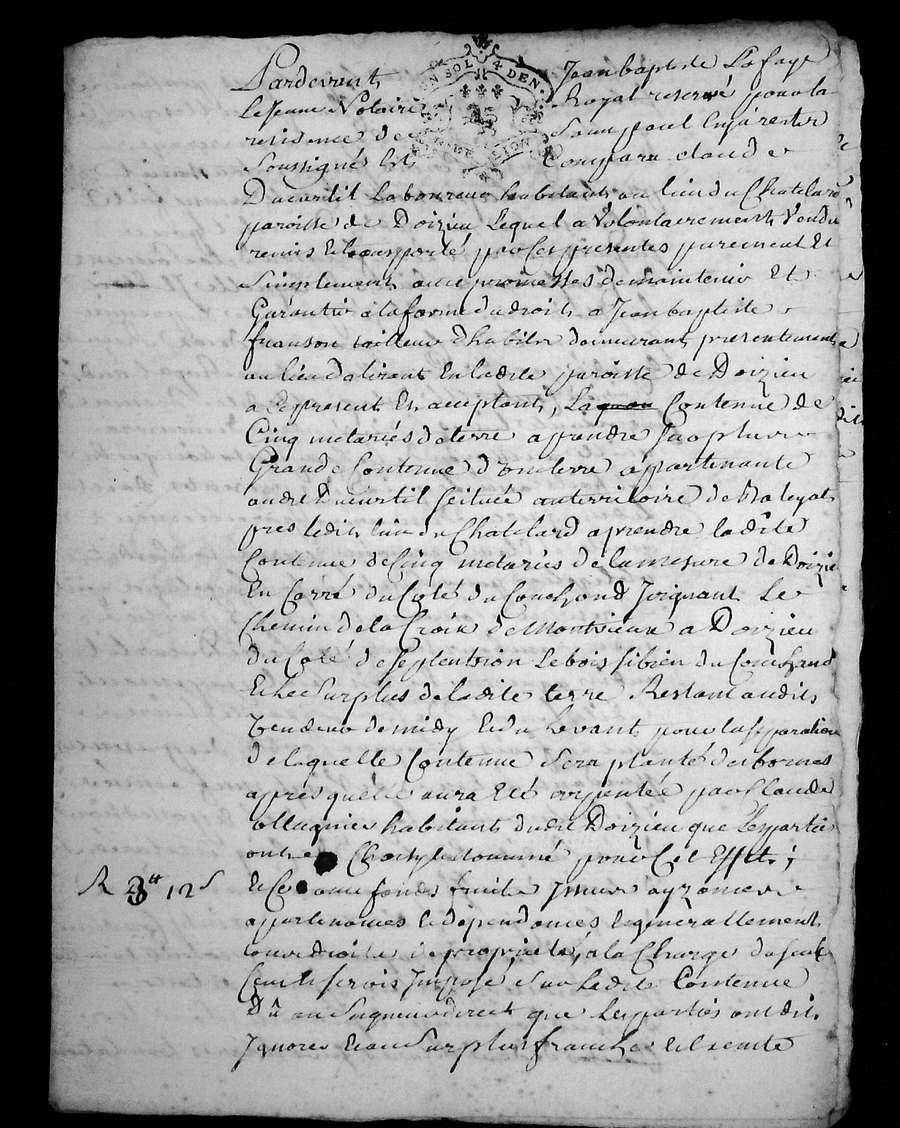 Pardevant Jean baptiste Lafaye
UN SOL 4 DEN.
LeJeune Notaire Royal reservé pour la
residence de Saint paul En jarester
Soussigné fut Comparu claude
LION
Ducurtil Laboureur habitant au lieu du Chatelard
paroisse de Doizieu Lequel a volontairement vendu
remis Et transporté par Ces presentes purement Et
Simplement avec promesses de maintenir Et
Garantir a la forme du droit a Jean baptiste
franson tailleur d'habits demeurant presentement
au lieu d En ladite paroisse de Doizieu
a Ce present Et acceptant, La Contenue de
Cinq metariés de terre a prendre Sur plus
Grande Contenue d'une terre appartenante
audit Ducurtil scituée au territoire de
pres ledit lieu du Chatelard a prendre ladite
Contenue de Cinq metariés de la mesure de Doizieu
En Carré du Coté du Couchand Joignant Le
Chemin de la Croix de Montvieux a Doizieu
du Coté de Septentrion Le bois du Couchand
Et Le Surplus de ladite terre Restant audit
Vendeur de midy Et du Levant pour la separation
de laquelle Contenue Sera planté des bornes
apres qu'elle aura Eté arpentée par Claude
habitant dudit Doizieu que Les parties
ont Choisy Et nommé pour Cet Effet;
R 3# 12s
Et Ce avec fonds fruits Issues
appartenances Et dependances Et generallement
tous droits de propriété, a la Charge du seul
Cens Et servis Imposé Sur Ladite Contenue
Dû au Seigneur direct que Les parties ont dit
Ignorer Et au Surplus franche Et Exempte